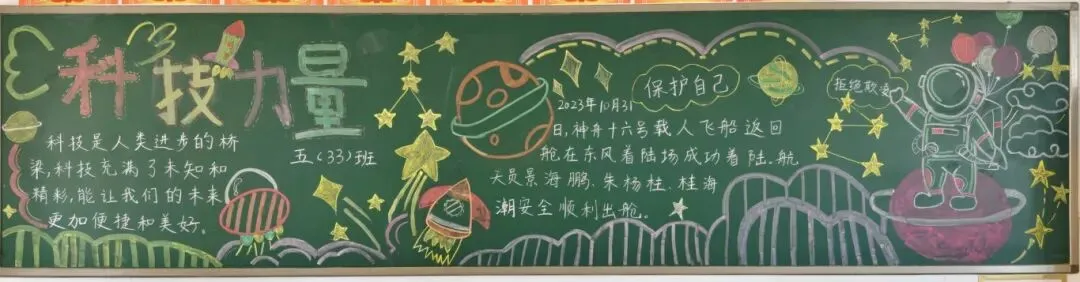 科技力量
科技是人类进步的桥
梁,科技充满了未知和
精彩,能让我们的未来
更加便捷和美好。
五(33)班
保护自己
2023年10月31
日,神舟十六号载人飞船返回
舱在东风着陆场成功着陆.航
天员景海鹏、朱杨柱、桂海
潮安全顺利出舱。
拒绝欺凌